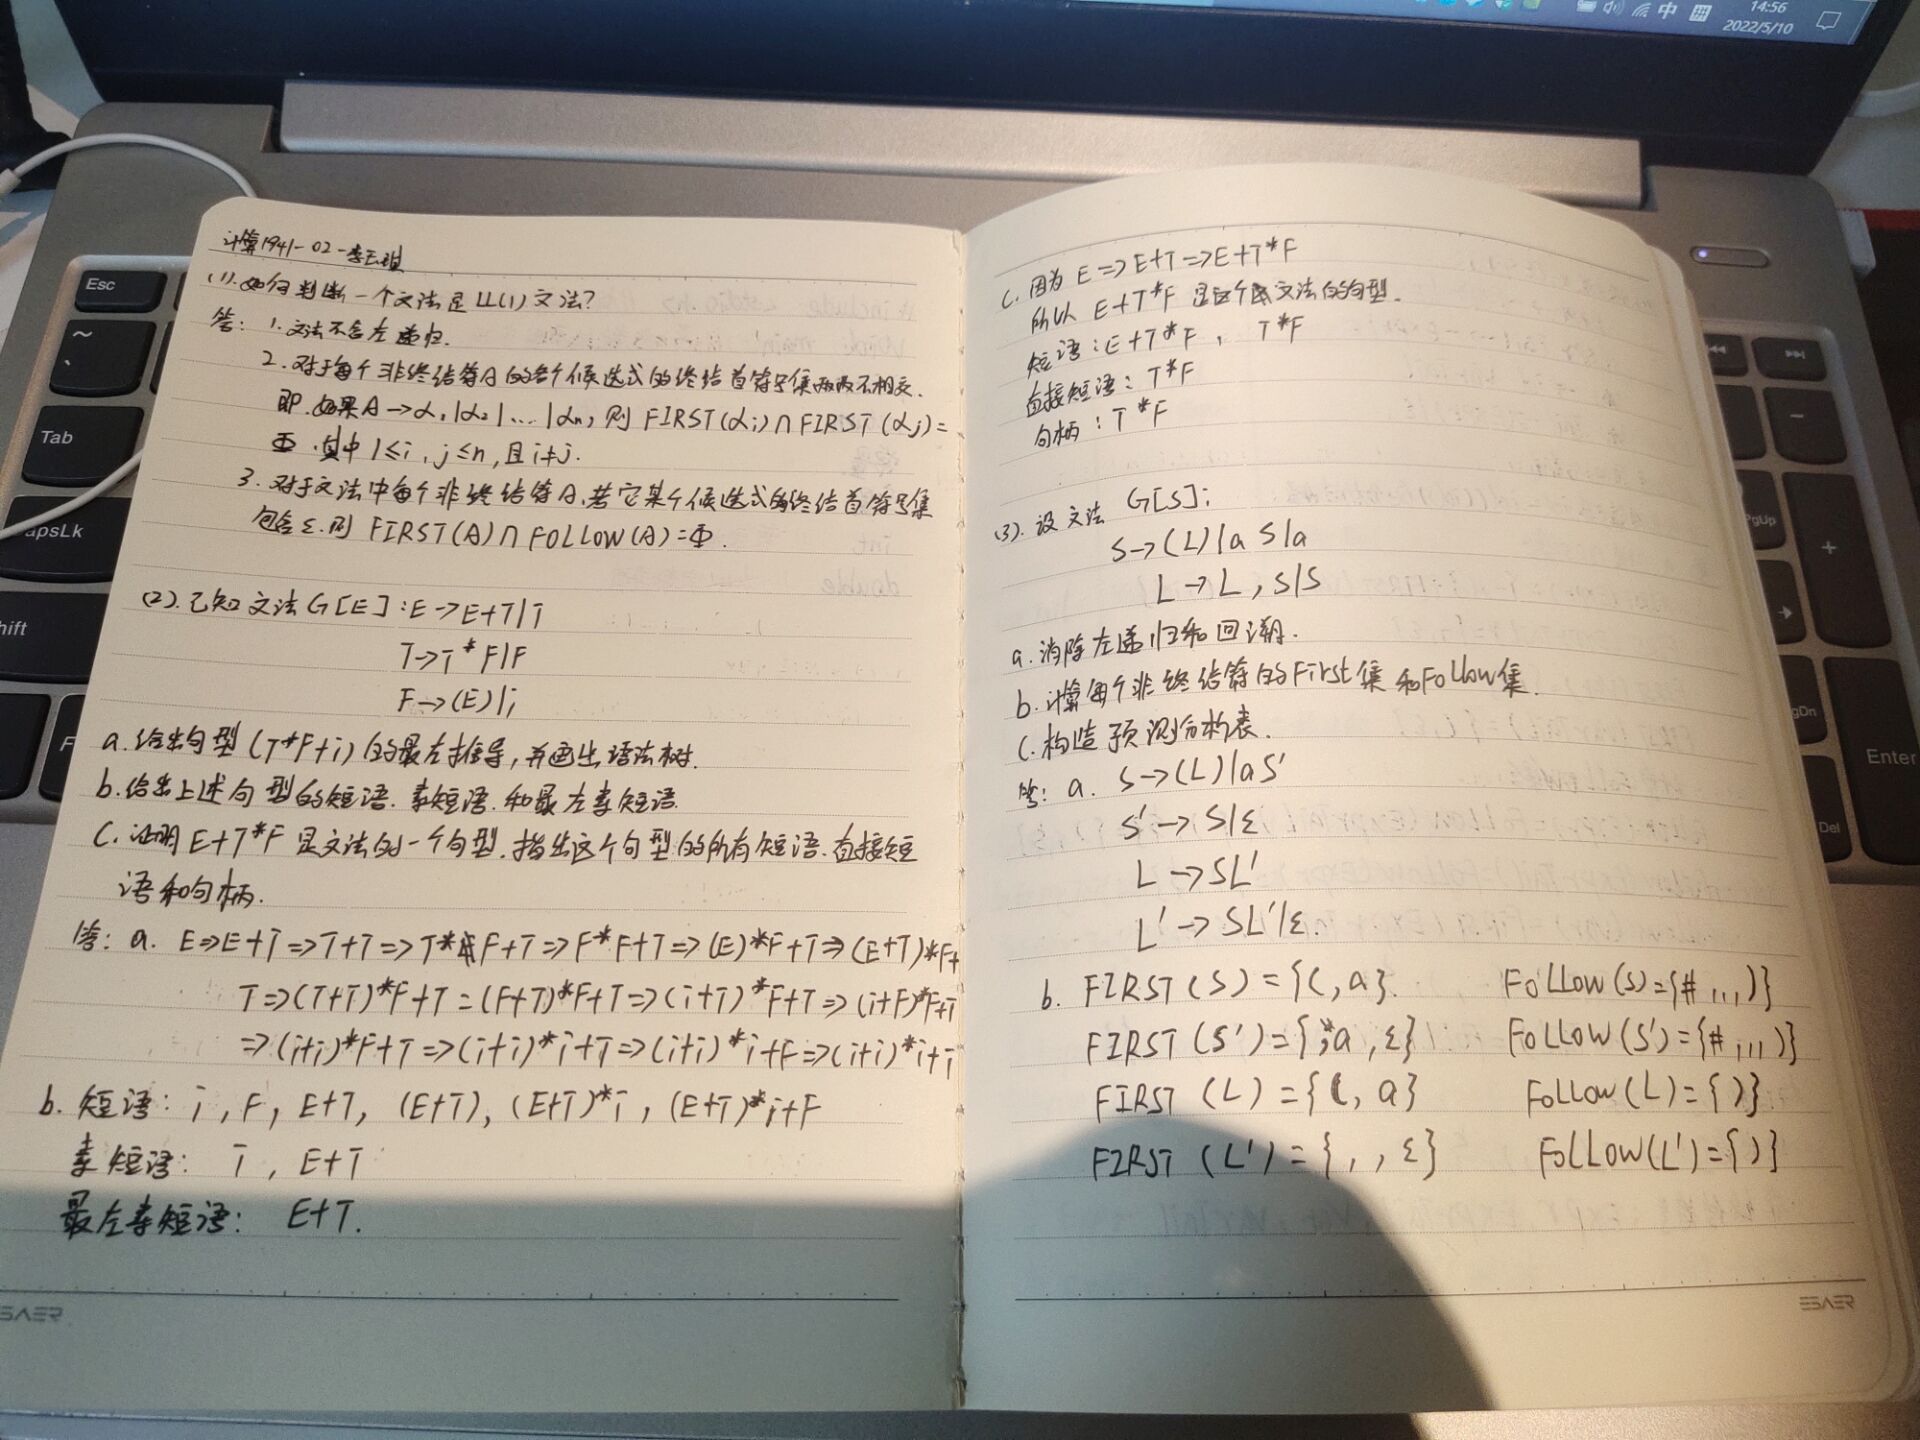 14:56
中
2022/5/10
Esc
Tab
apsLk
hift
F
PgUp
PgDn
Enter
Del
计算1941-02-李
(1).如何判断一个文法是LL(1)文法?
答: 1.文法不含左递归.
2.对于每个非终结符A的各个候选式的终结首符号集两两不相交.
即.如果A→α₁|α₂|...|αn,则 FIRST(αi)∩FIRST(αj)=
Φ.其中1≤i,j≤n,且i≠j.
3.对于文法中每个非终结符A,若它某个候选式的终结首符号集
包含ε.则 FIRST(A)∩FOLLOW(A)=Φ.
(2).已知文法G[E]:E→E+T|T
T→T*F|F
F→(E)|i
a.给出句型(T*F+i)的最左推导,并画出语法树.
b.给出上述句型的短语.素短语.和最左素短语.
C.证明E+T*F是文法的一个句型.指出这个句型的所有短语.直接短
语和句柄.
答: a. E=>E+T=>T+T=>T*F+T=>F*F+T=>(E)*F+T=>(E+T)*F+
T=>(T+T)*F+T=(F+T)*F+T=>(i+T)*F+T=>(i+F)*F+T
=>(i+i)*F+T=>(i+i)*i+T=>(i+i)*i+F=>(i+i)*i+i
b. 短语: i, F, E+T, (E+T), (E+T)*i, (E+T)*i+F
素短语: i, E+T
最左素短语: E+T.
ESAER
C. 因为 E=>E+T=>E+T*F
所以 E+T*F 是这个文法的句型.
短语:E+T*F, T*F
直接短语: T*F
句柄: T*F
(3).设文法 G[S]:
S→(L)|aS|a
L→L,S|S
a.消除左递归和回溯.
b.计算每个非终结符的First集和Follow集.
C.构造预测分析表.
答: a. S→(L)|aS'
S'→S|ε
L→SL'
L'→SL'|ε.
b. FIRST(S)={(,a}. FOLLOW(S)={#,,,)}
FIRST(S')={a,ε} FOLLOW(S')={#,,,)}
FIRST(L)={(,a} FOLLOW(L)={)}
FIRST(L')={,,ε} FOLLOW(L')={)}
ESAER